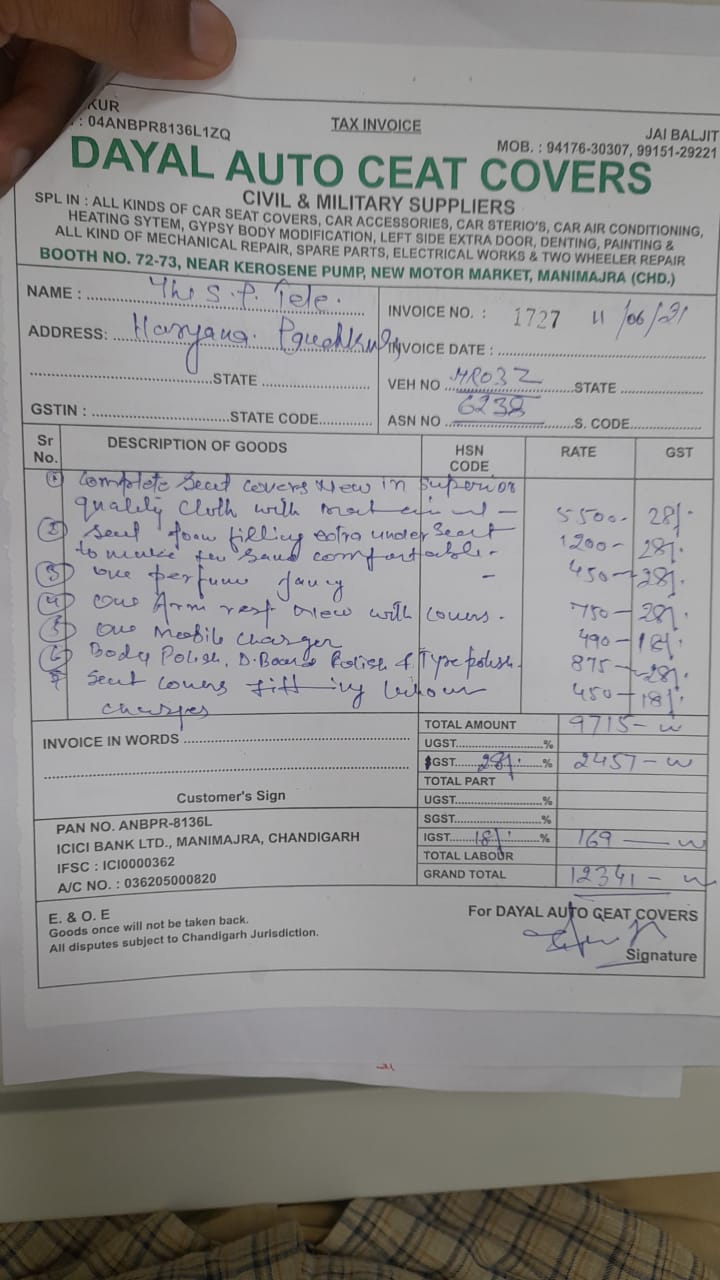 KUR
: 04ANBPR8136L1ZQ
TAX INVOICE
JAI BALJIT
MOB. : 94176-30307, 99151-29221
DAYAL AUTO CEAT COVERS
CIVIL & MILITARY SUPPLIERS
SPL IN : ALL KINDS OF CAR SEAT COVERS, CAR ACCESSORIES, CAR STERIO'S, CAR AIR CONDITIONING,
HEATING SYTEM, GYPSY BODY MODIFICATION, LEFT SIDE EXTRA DOOR, DENTING, PAINTING &
ALL KIND OF MECHANICAL REPAIR, SPARE PARTS, ELECTRICAL WORKS & TWO WHEELER REPAIR
BOOTH NO. 72-73, NEAR KEROSENE PUMP, NEW MOTOR MARKET, MANIMAJRA (CHD.)
NAME : The S.P. Tele.
ADDRESS: Haryana.
STATE
GSTIN : STATE CODE
INVOICE NO. : 1727 11/06/21
INVOICE DATE :
VEH NO HR03Z STATE
6238
ASN NO S. CODE
Sr No. DESCRIPTION OF GOODS HSN CODE RATE GST
1 Complete Seat covers New in Superior
quality cloth with - 5500- 28%
2 Seat foam filling extra under Seat
to make comfortable - 1200- 28%
3 one perfume fancy - 450- 28%
4 One Arm rest New with covers. 750- 28%
5 One Mobile charger 490- 18%
6 Body Polish, D.Board Polish & Tyre polish. 875- 28%
7 Seat covers fitting labour
charges 450- 18%
INVOICE IN WORDS
Customer's Sign
TOTAL AMOUNT 9715-
UGST %
GST 28% % 2457-
TOTAL PART
UGST %
SGST %
IGST 18% % 169
TOTAL LABOUR
GRAND TOTAL 12341-
PAN NO. ANBPR-8136L
ICICI BANK LTD., MANIMAJRA, CHANDIGARH
IFSC : ICI0000362
A/C NO. : 036205000820
E. & O. E
Goods once will not be taken back.
All disputes subject to Chandigarh Jurisdiction.
For DAYAL AUTO CEAT COVERS
Signature